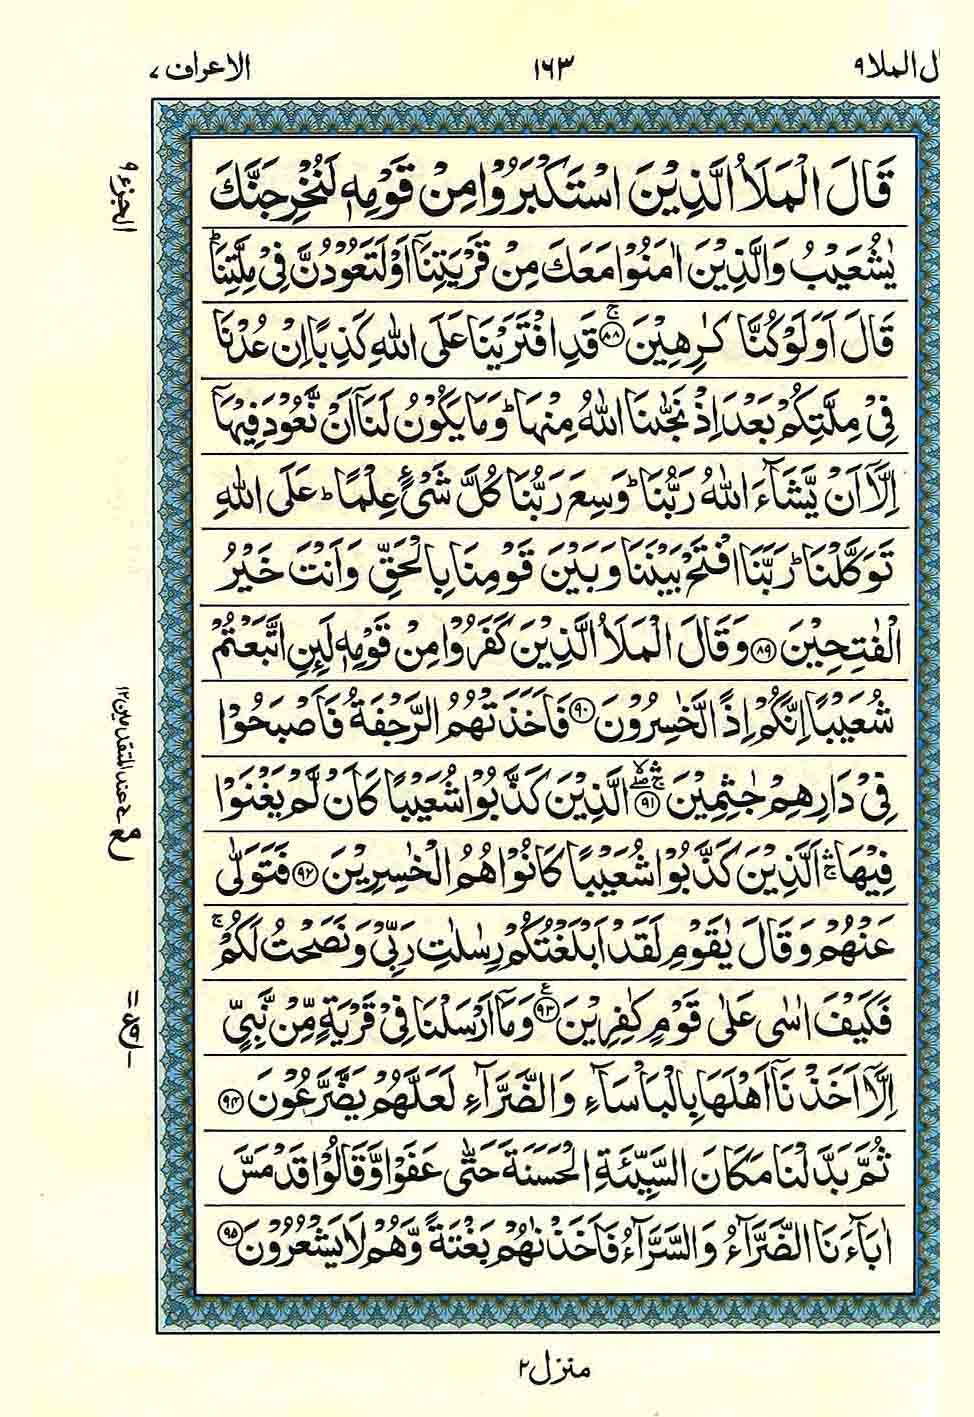 ال الملا ۹
۱۶۳
الاعراف ۷
قَالَ الْمَلَاُ الَّذِيْنَ اسْتَكْبَرُوْا مِنْ قَوْمِهٖ لَنُخْرِجَنَّكَ
يٰشُعَيْبُ وَالَّذِيْنَ اٰمَنُوْا مَعَكَ مِنْ قَرْيَتِنَاۤ اَوْ لَتَعُوْدُنَّ فِيْ مِلَّتِنَا ؕ
قَالَ اَوَلَوْ كُنَّا كٰرِهِيْنَ ۚ ﴿۸۸﴾ قَدِ افْتَرَيْنَا عَلَى اللّٰهِ كَذِبًا اِنْ عُدْنَا
فِيْ مِلَّتِكُمْ بَعْدَ اِذْ نَجّٰىنَا اللّٰهُ مِنْهَا ؕ وَمَا يَكُوْنُ لَنَاۤ اَنْ نَّعُوْدَ فِيْهَاۤ
اِلَّاۤ اَنْ يَّشَآءَ اللّٰهُ رَبُّنَا ؕ وَسِعَ رَبُّنَا كُلَّ شَيْءٍ عِلْمًا ؕ عَلَى اللّٰهِ
تَوَكَّلْنَا ؕ رَبَّنَا افْتَحْ بَيْنَنَا وَبَيْنَ قَوْمِنَا بِالْحَقِّ وَاَنْتَ خَيْرُ
الْفٰتِحِيْنَ ﴿۸۹﴾ وَقَالَ الْمَلَاُ الَّذِيْنَ كَفَرُوْا مِنْ قَوْمِهٖ لَئِنِ اتَّبَعْتُمْ
شُعَيْبًا اِنَّكُمْ اِذًا لَّخٰسِرُوْنَ ﴿۹۰﴾ فَاَخَذَتْهُمُ الرَّجْفَةُ فَاَصْبَحُوْا
فِيْ دَارِهِمْ جٰثِمِيْنَ ﴿۹۱﴾ الَّذِيْنَ كَذَّبُوْا شُعَيْبًا كَاَنْ لَّمْ يَغْنَوْا
فِيْهَا ۛ اَلَّذِيْنَ كَذَّبُوْا شُعَيْبًا كَانُوْا هُمُ الْخٰسِرِيْنَ ﴿۹۲﴾ فَتَوَلّٰى
عَنْهُمْ وَقَالَ يٰقَوْمِ لَقَدْ اَبْلَغْتُكُمْ رِسٰلٰتِ رَبِّيْ وَنَصَحْتُ لَكُمْ ۚ
فَكَيْفَ اٰسٰى عَلٰى قَوْمٍ كٰفِرِيْنَ ﴿۹۳﴾ وَمَاۤ اَرْسَلْنَا فِيْ قَرْيَةٍ مِّنْ نَّبِيٍّ
اِلَّاۤ اَخَذْنَاۤ اَهْلَهَا بِالْبَاْسَآءِ وَالضَّرَّآءِ لَعَلَّهُمْ يَضَّرَّعُوْنَ ﴿۹۴﴾
ثُمَّ بَدَّلْنَا مَكَانَ السَّيِّئَةِ الْحَسَنَةَ حَتّٰى عَفَوْا وَّقَالُوْا قَدْ مَسَّ
اٰبَآءَنَا الضَّرَّآءُ وَالسَّرَّآءُ فَاَخَذْنٰهُمْ بَغْتَةً وَّهُمْ لَا يَشْعُرُوْنَ ﴿۹۵﴾
الجزء ۹
مع عند المتقدمين ۱۲
منزل ۲